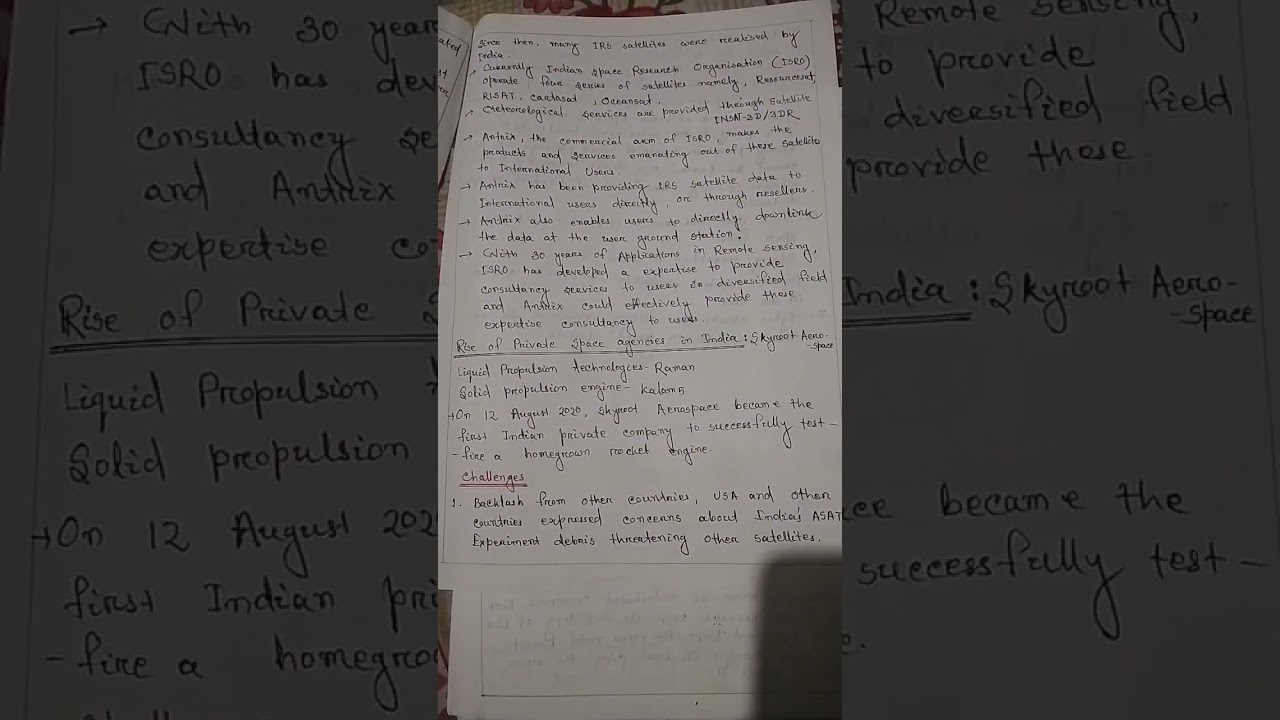 since then, many IRS satellites were realised by
India.
→ Currently Indian Space Research Organisation (ISRO)
operate four series of satellites namely, Resourcesat,
RISAT, Cartosat, Oceansat.
→ Meteorological services are provided through satellite
INSAT-3D/3DR
→ Antrix, the commercial arm of ISRO, makes the
products and services emanating out of these satellite
to International Users.
→ Antrix has been providing IRS satellite data to
International users directly, or through resellers.
→ Antrix also enables users to directly downlink
the data at the user ground station.
→ With 30 years of Applications in Remote sensing,
ISRO has developed a expertise to provide
consultancy services to users in diversified field
and Antrix could effectively provide these
expertise consultancy to users.
Rise of Private Space agencies in India : Skyroot Aero-
-space
Liquid Propulsion technologies- Raman
Solid propulsion engine- Kalam 5
→ On 12 August 2020, Skyroot Aerospace became the
first Indian private company to successfully test-
-fire a homegrown rocket engine.
Challenges
1. Backlash from other countries, USA and other
countries expressed concerns about India's ASAT
Experiment debris threatening other satellites.